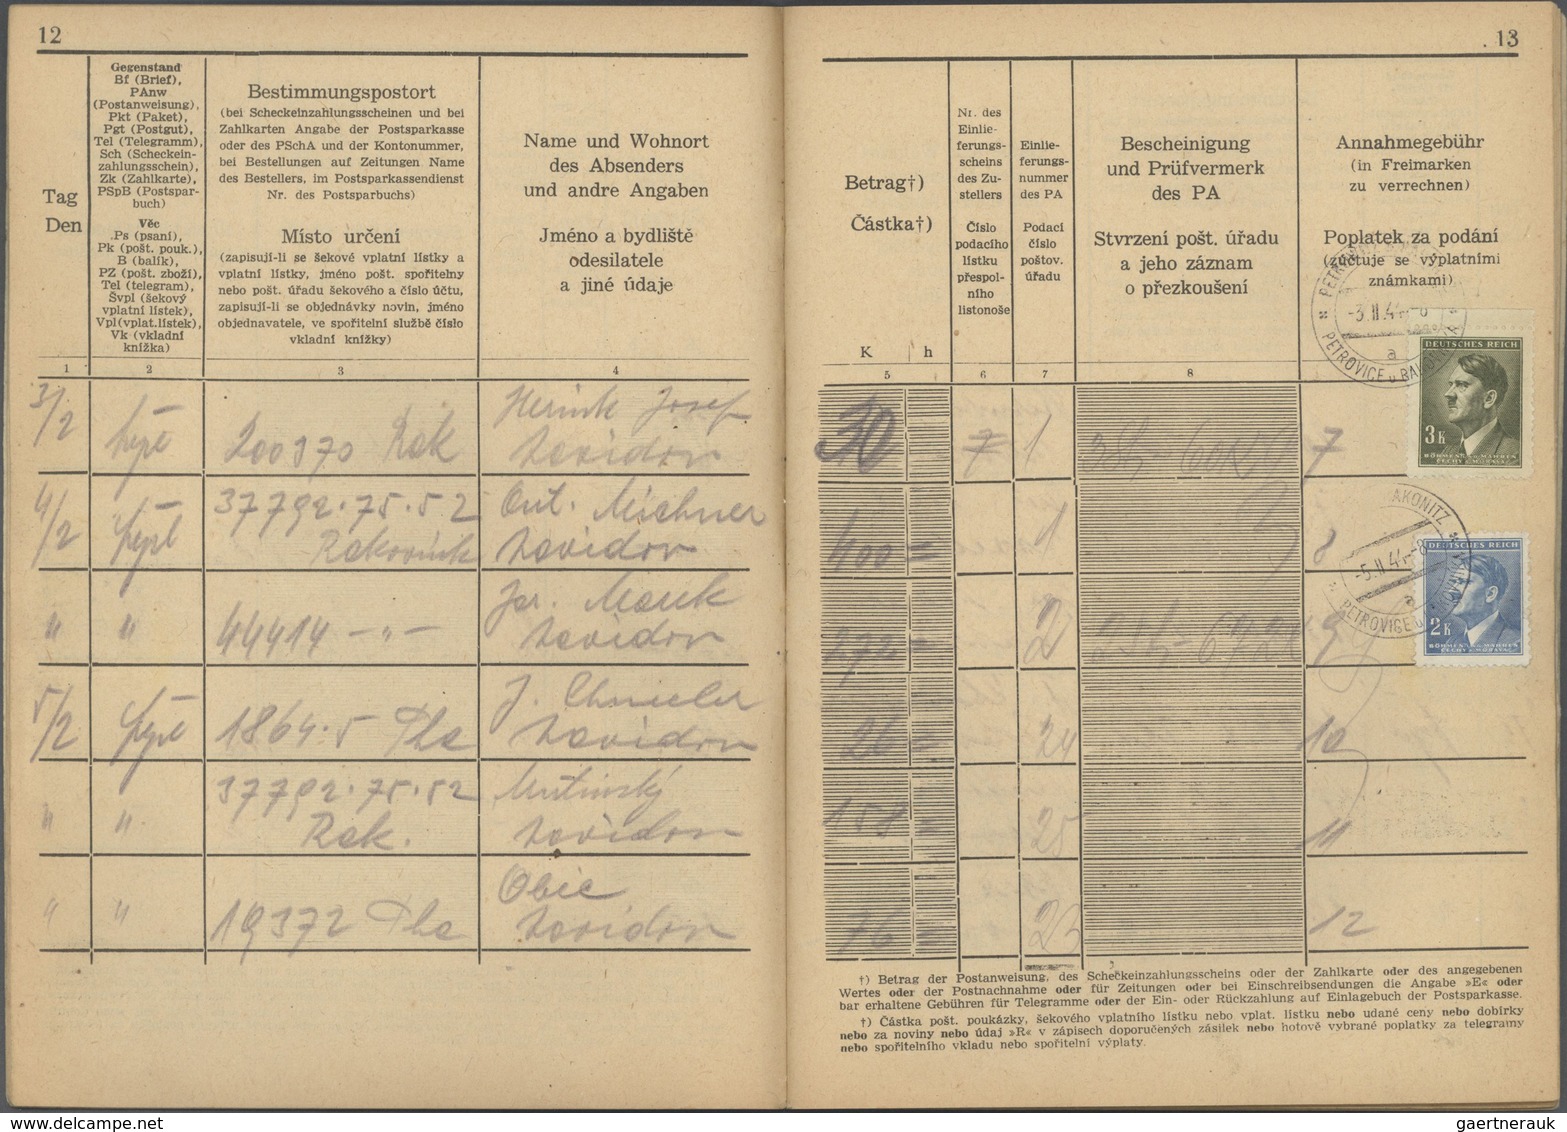 12
Tag
Den
Gegenstand
Bf (Brief),
PAnw
(Postanweisung),
Pkt (Paket),
Pgt (Postgut),
Tel (Telegramm),
Sch (Scheckein-
zahlungsschein),
Zk (Zahlkarte),
PSpB (Postspar-
buch)
Věc
Ps (psaní),
Pk (pošt. pouk.),
B (balík),
PZ (pošt. zboží),
Tel (telegram),
Švpl (šekový
vplatní lístek),
Vpl (vplat.lístek),
Vk (vkladní
knížka)
Bestimmungspostort
(bei Scheckeinzahlungsscheinen und bei
Zahlkarten Angabe der Postsparkasse
oder des PSchA und der Kontonummer,
bei Bestellungen auf Zeitungen Name
des Bestellers, im Postsparkassendienst
Nr. des Postsparbuchs)
Místo určení
(zapisují-li se šekové vplatní lístky a
vplatní lístky, jméno pošt. spořitelny
nebo pošt. úřadu šekového a číslo účtu,
zapisují-li se objednávky novin, jméno
objednavatele, ve spořitelní službě číslo
vkladní knížky)
Name und Wohnort
des Absenders
und andre Angaben
Jméno a bydliště
odesilatele
a jiné údaje
1 2 3 4
3/2 200370 Rak Josef
4/2 37792·75·52
Rakovník
" " 44414 -"-
5/2 1864·5 Pha
" " 37792·75·52
Rak.
" " 19372 Pha
13
Betrag†)
Částka†)
K h
Nr. des
Einlie-
ferungs-
scheins
des Zu-
stellers
Číslo
podacího
lístku
přespol-
ního
listonoše
Einlie-
ferungs-
nummer
des PA
Podací
číslo
poštov.
úřadu
Bescheinigung
und Prüfvermerk
des PA
Stvrzení pošt. úřadu
a jeho záznam
o přezkoušení
Annahmegebühr
(in Freimarken
zu verrechnen)
Poplatek za podání
(zúčtuje se výplatními
známkami)
5 6 7 8
30 7 1 7
400= 1 8
272= 2 9
26= 24 10
158= 25 11
76= 12
-3.II.44.-8
a
PETROVICE u RAKOVNÍKA
DEUTSCHES REICH
3K
BÖHMEN u. MÄHREN
ČECHY a MORAVA
AKONITZ
-5.II.44.-8
a
PETROVICE u
DEUTSCHES REICH
2K
BÖHMEN u. MÄHREN
ČECHY a MORAVA
†) Betrag der Postanweisung, des Scheckeinzahlungsscheins oder der Zahlkarte oder des angegebenen
Wertes oder der Postnachnahme oder für Zeitungen oder bei Einschreibsendungen die Angabe »E« oder
bar erhaltene Gebühren für Telegramme oder der Ein- oder Rückzahlung auf Einlagebuch der Postsparkasse.
†) Částka pošt. poukázky, šekového vplatního lístku nebo vplat. lístku nebo udané ceny nebo dobírky
nebo za noviny nebo údaj »R« v zápisech doporučených zásilek nebo hotově vybrané poplatky za telegramy
nebo spořitelního vkladu nebo spořitelní výplaty.
gaertnerauk